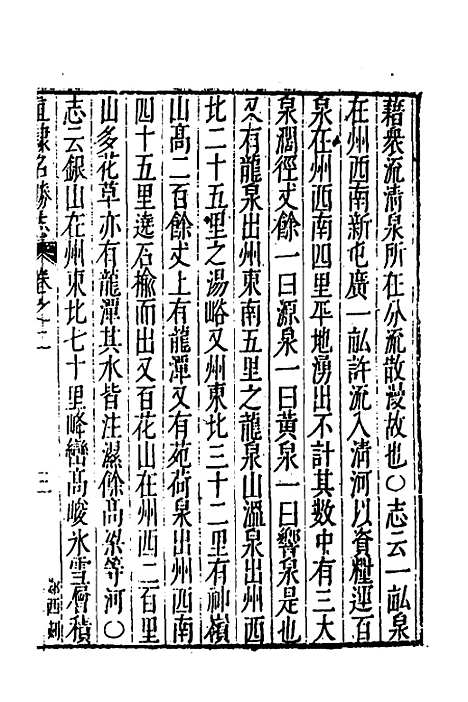 藉衆流清泉所在分流散漫故也〇志云一畆泉
在州西南新屯廣一畆許流入清河以資糧運百
泉在州西南四里平地湧出不計其數中有三大
泉濶徑丈餘一曰源泉一曰黃泉一曰響泉是也
又有龍泉出州東南五里之龍泉山溫泉出州西
北二十五里之湯峪又州東北三十二里有神嶺
山髙二百餘丈上有龍潭又有苑荷泉出州西南
四十五里遶石槽而出又百花山在州西二百里
山多花草亦有龍潭其水皆注濕餘髙梁等河〇
志云銀山在州東北七十里峰巒髙峻氷雪層積
直隷名勝志 卷之十二 三